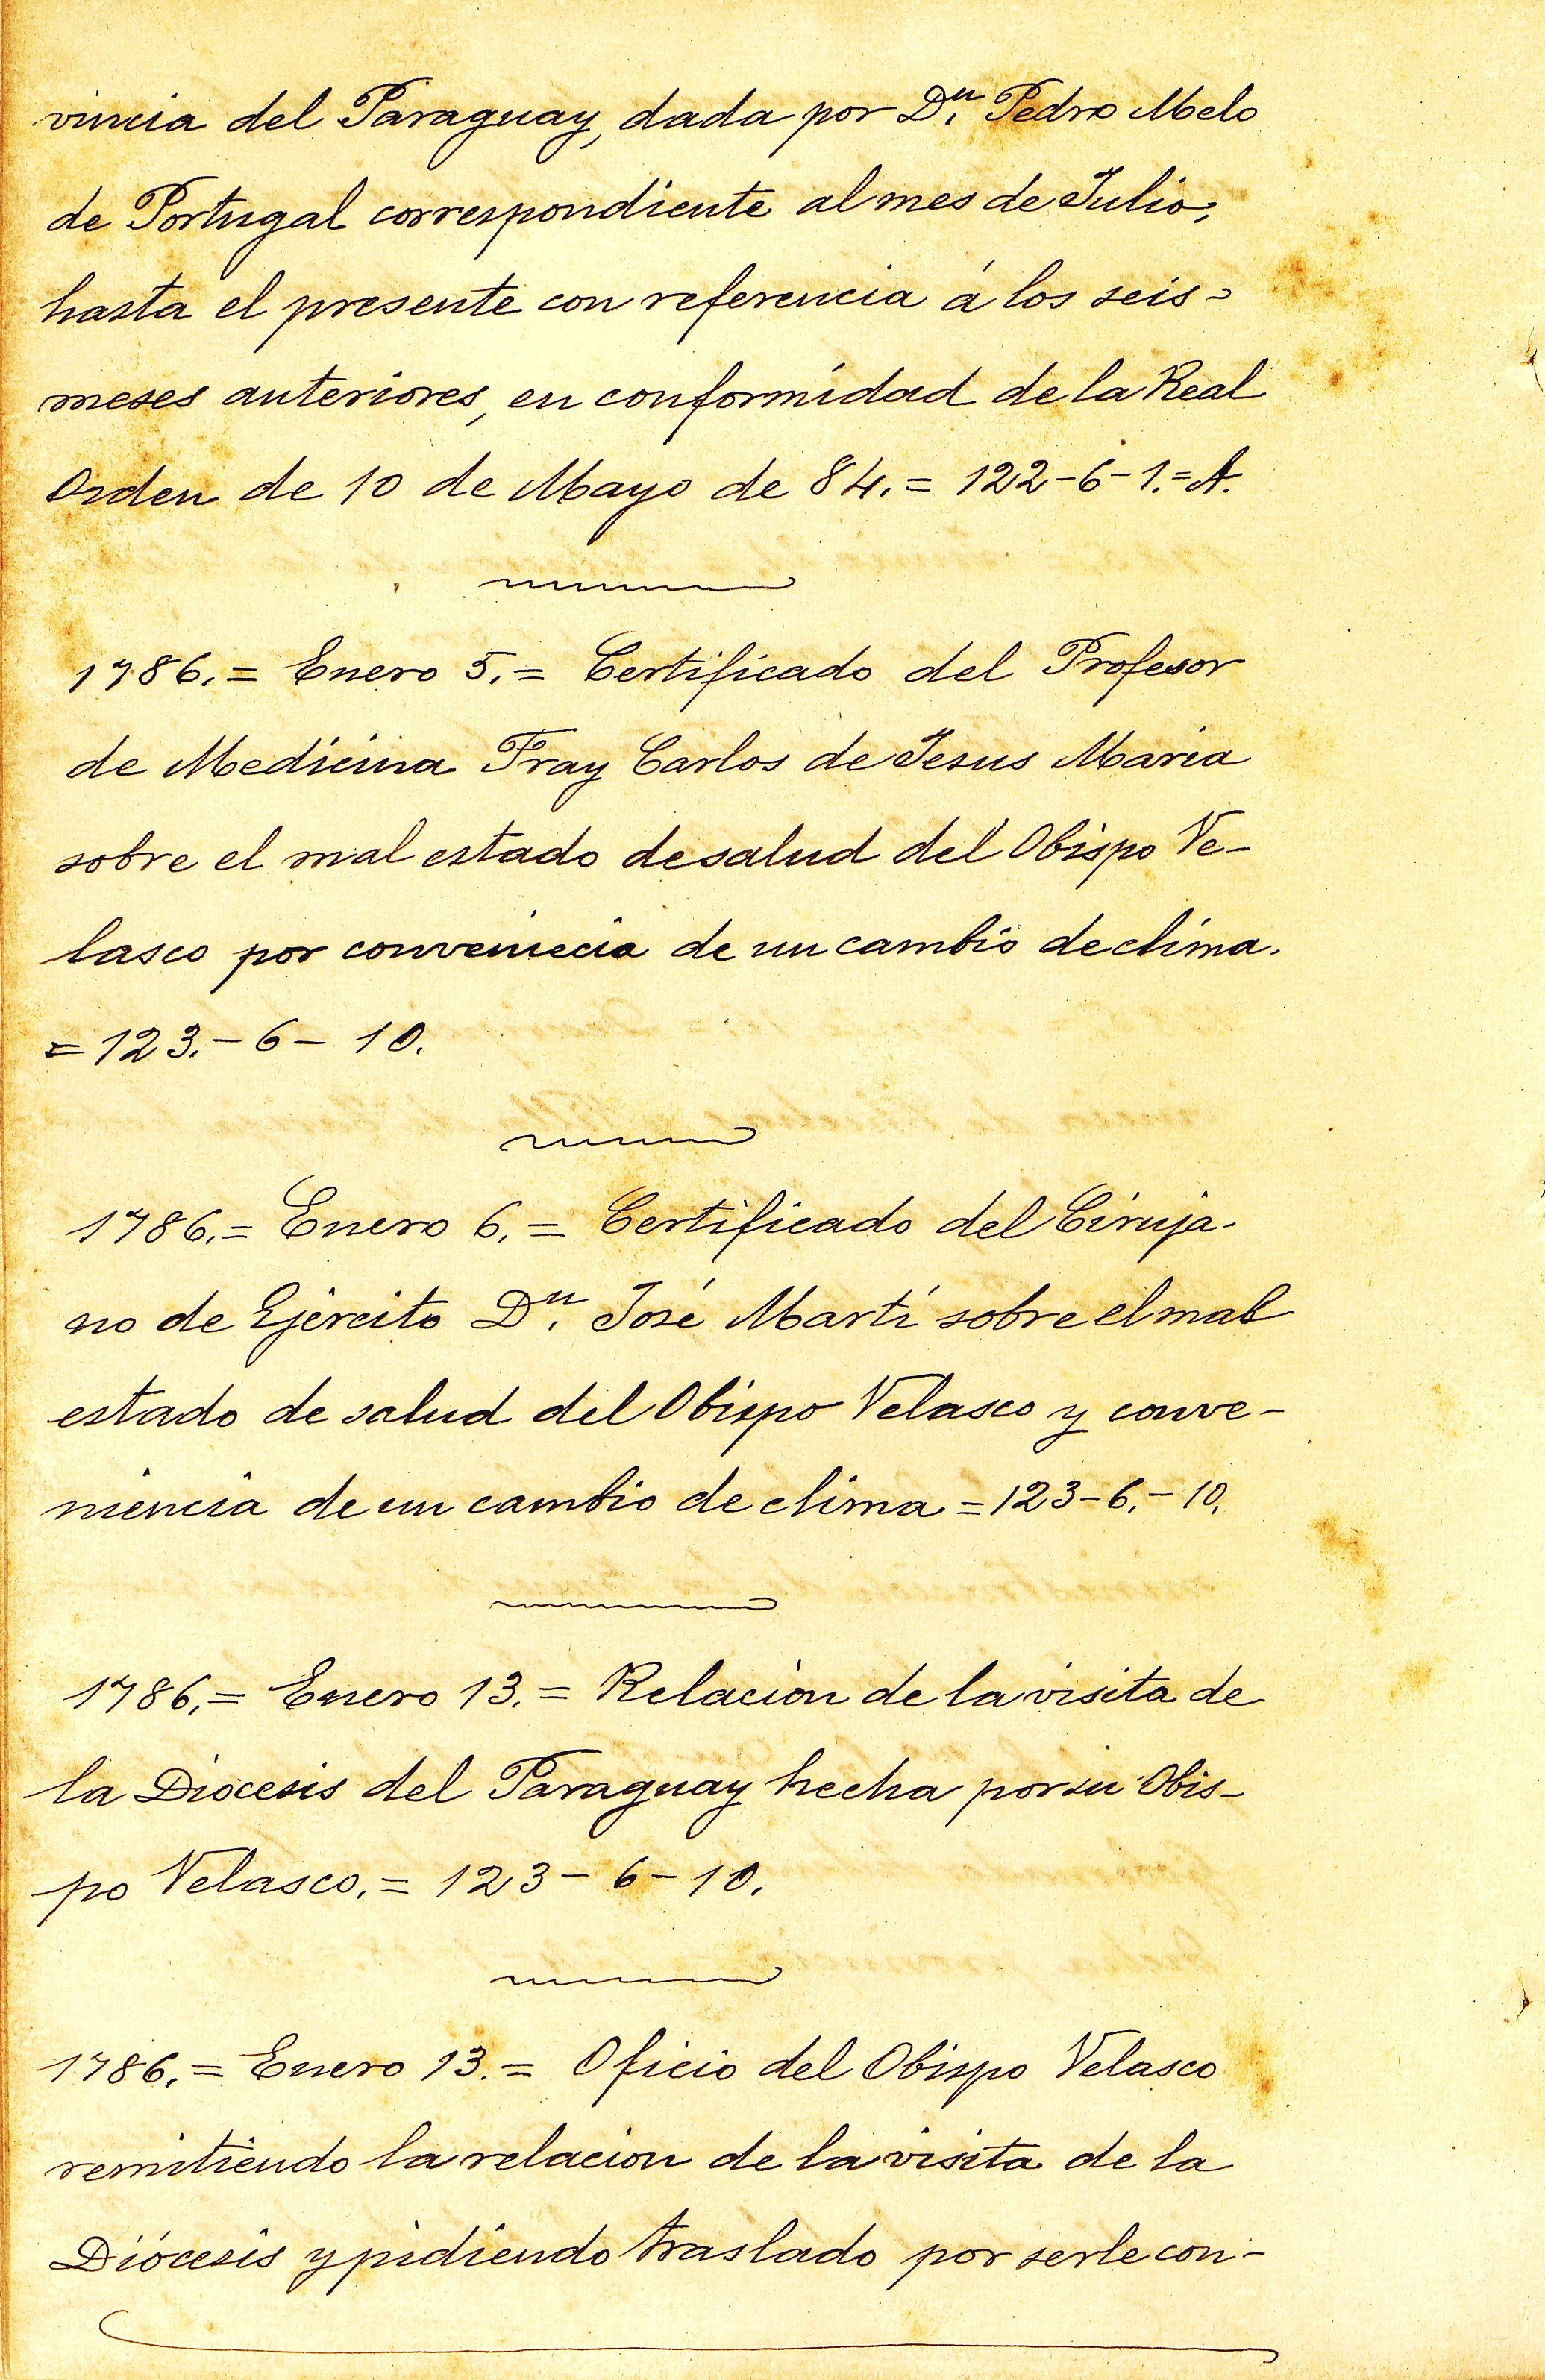 vincia del Paraguay, dada por Dn. Pedro Melo
de Portugal correspondiente al mes de Julio,
hasta el presente con referencia á los seis-
meses anteriores, en conformidad de la Real
Orden de 10 de Mayo de 84. = 122-6-1.=A.
1786. = Enero 5. = Certificado del Profesor
de Medicina Fray Carlos de Jesus Maria
sobre el mal estado de salud del Obispo Ve-
lasco por conveniecia de un cambio de clima.
= 123.-6- 10.
1786. = Enero 6. = Certificado del Ciruja-
no de Ejército Dn. José Martí sobre el mal
estado de salud del Obispo Velasco y conve-
niencia de un cambio de clima = 123-6.-10.
1786. = Enero 13. = Relación de la visita de
la Diocesis del Paraguay hecha por su Obis-
po Velasco. = 123- 6-10.
1786. = Enero 13. = Oficio del Obispo Velasco
remitiendo la relacion de la visita de la
Diócesis y pidiendo traslado por serle con-